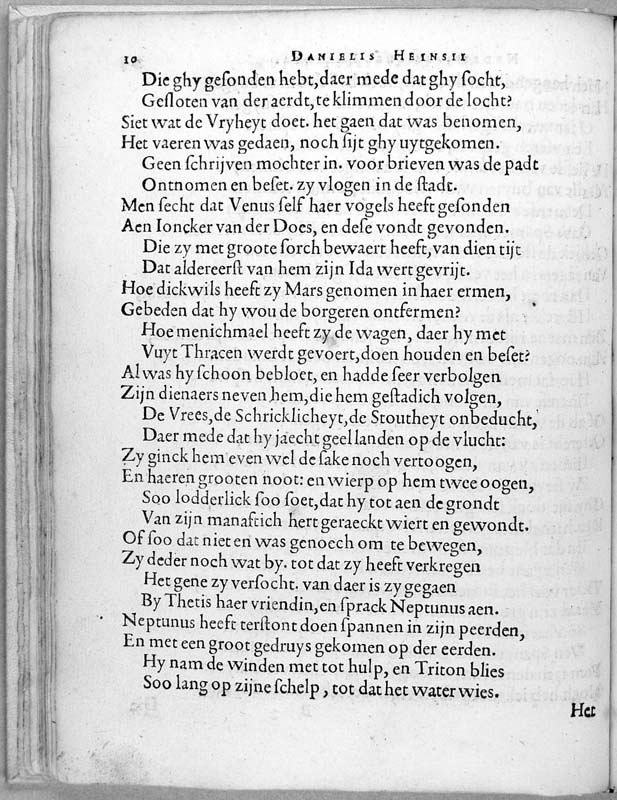 10 DANIELIS HEINSII
Die ghy gesonden hebt, daer mede dat ghy socht,
Gesloten van der aerdt, te klimmen door de locht?
Siet wat de Vryheyt doet. het gaen dat was benomen,
Het vaeren was gedaen, noch sijt ghy uytgekomen.
Geen schrijven mochter in. voor brieven was de padt
Ontnomen en beset. zy vlogen in de stadt.
Men secht dat Venus self haer vogels heeft gesonden
Aen Ioncker van der Does, en dese vondt gevonden.
Die zy met groote sorch bewaert heeft, van dien tijt
Dat aldereerst van hem zijn Ida wert gevrijt.
Hoe dickwils heeft zy Mars genomen in haer ermen,
Gebeden dat hy wou de borgeren ontfermen?
Hoe menichmael heeft zy de wagen, daer hy met
Vuyt Thracen werdt gevoert, doen houden en beset?
Al was hy schoon bebloet, en hadde seer verbolgen
Zijn dienaers neven hem, die hem gestadich volgen,
De Vrees, de Schricklicheyt, de Stoutheyt onbeducht,
Daer mede dat hy jaecht geel landen op de vlucht:
Zy ginck hem even wel de sake noch vertoogen,
En haeren grooten noot: en wierp op hem twee oogen,
Soo lodderlick soo soet, dat hy tot aen de grondt
Van zijn manastich hert geraeckt wiert en gewondt.
Of soo dat niet en was genoech om te bewegen,
Zy deder noch wat by. tot dat zy heeft verkregen
Het gene zy versocht. van daer is zy gegaen
By Thetis haer vriendin, en sprack Neptunus aen.
Neptunus heeft terstont doen spannen in zijn peerden,
En met een groot gedruys gekomen op der eerden.
Hy nam de winden met tot hulp, en Triton blies
Soo lang op zijne schelp, tot dat het water wies.
Het